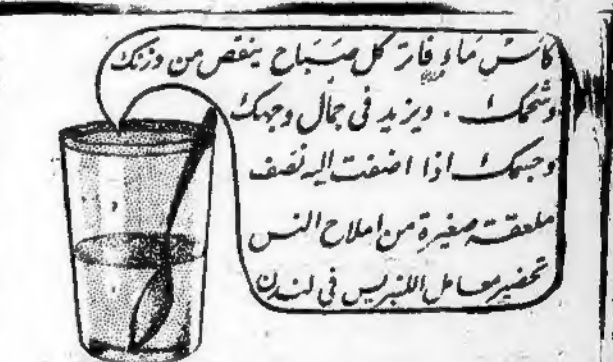 كاس ماء فاتر كل صباح ينقص من وزنك
وشحمك . ويزيد في جمال وجهك
وجسمك اذا اضفت اليه نصف
ملعقة صغيرة من املاح النس
تحضير معامل اللنبريس في لندن